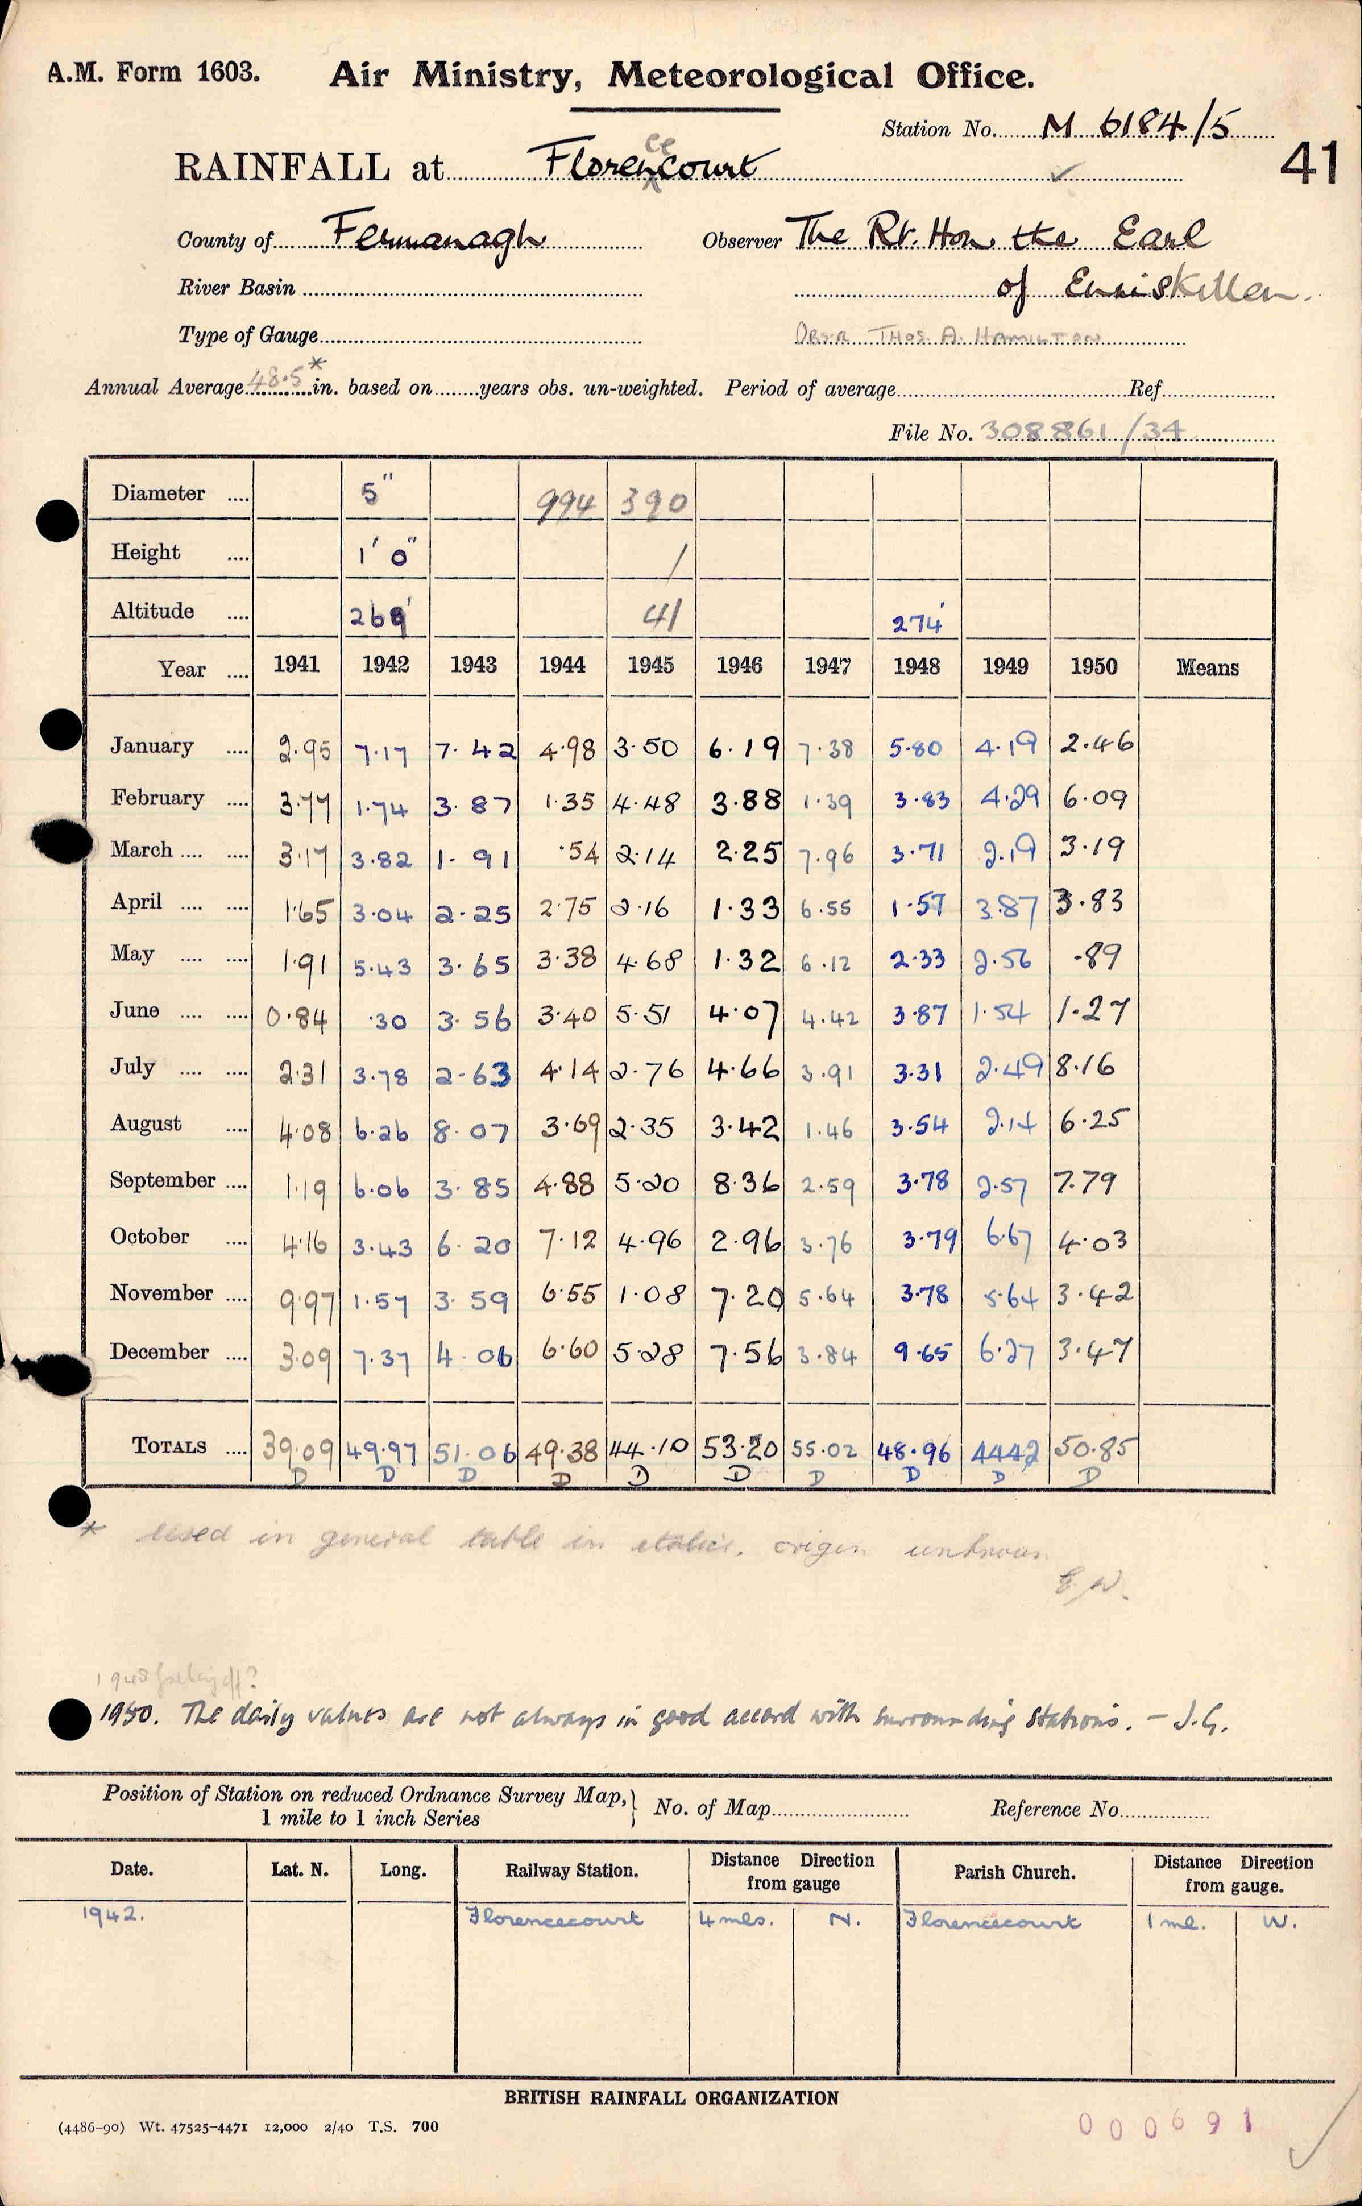 A.M. Form 1603. Air Ministry, Meteorological Office.
Station No. M 6184/5
41
RAINFALL at Florencecourt ✓
County of Fermanagh Observer The Rt. Hon. the Earl
River Basin of Enniskillen.
Type of Gauge Obsr Thos. A. Hamilton
Annual Average 48.5* in. based on years obs. un-weighted. Period of average Ref.
File No. 308861/34
Diameter .... 5" 994 390
Height .... 1' 0" 1
Altitude .... 269' 41 274'
Year .... 1941 1942 1943 1944 1945 1946 1947 1948 1949 1950 Means
January .... 2.95 7.17 7.42 4.98 3.50 6.19 7.38 5.80 4.19 2.46
February .... 3.77 1.74 3.87 1.35 4.48 3.88 1.39 3.83 4.29 6.09
March .... .... 3.17 3.82 1.91 .54 2.14 2.25 7.96 3.71 2.19 3.19
April .... .... 1.65 3.04 2.25 2.75 2.16 1.33 6.55 1.57 3.87 3.83
May .... .... 1.91 5.43 3.65 3.38 4.68 1.32 6.12 2.33 2.56 .89
June .... .... 0.84 .30 3.56 3.40 5.51 4.07 4.42 3.87 1.54 1.27
July .... .... 2.31 3.78 2.63 4.14 2.76 4.66 3.91 3.31 2.49 8.16
August .... 4.08 6.26 8.07 3.69 2.35 3.42 1.46 3.54 2.14 6.25
September .... 1.19 6.06 3.85 4.88 5.20 8.36 2.59 3.78 2.57 7.79
October .... 4.16 3.43 6.20 7.12 4.96 2.96 3.76 3.79 6.67 4.03
November .... 9.97 1.57 3.59 6.55 1.08 7.20 5.64 3.78 5.64 3.42
December .... 3.09 7.37 4.06 6.60 5.28 7.56 3.84 9.65 6.27 3.47
TOTALS .... 39.09 49.97 51.06 49.38 44.10 53.20 55.02 48.96 44.42 50.85
D D D D D D D D D D
* Used in general table in italics. origin unknown
E.W.
1948 falling off?
1950. The daily values are not always in good accord with surrounding stations. – J.G.
Position of Station on reduced Ordnance Survey Map, } No. of Map Reference No.
1 mile to 1 inch Series
Date. Lat. N. Long. Railway Station. Distance Direction from gauge Parish Church. Distance Direction from gauge.
1942. Florencecourt 4 mls. N. Florencecourt 1 ml. W.
BRITISH RAINFALL ORGANIZATION
(4486-90) Wt. 47525-4471 12,000 2/40 T.S. 700
000691